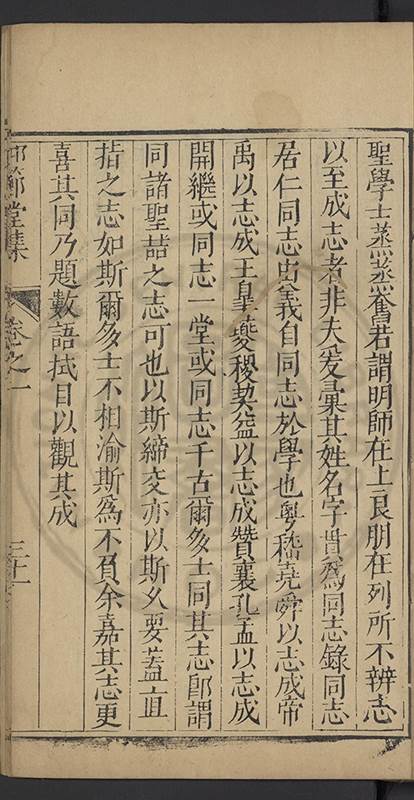 聖學士蒸蒸奮若謂明師在上良朋在列所不辨志
以至成志者非夫爰彙其姓名字貫為同志錄同志
居仁同志由義自同志於學也粵稽堯舜以志成帝
禹以志成王皇夔稷契益以志成贊襄孔孟以志成
開繼或同志一堂或同志千古爾多士同其志卽謂
同諸聖喆之志可也以斯締交亦以斯久要蓋直
指之志如斯爾多士不相渝斯為不負余嘉其志更
喜其同乃題數語拭目以觀其成
節堂集
卷之一
三十一